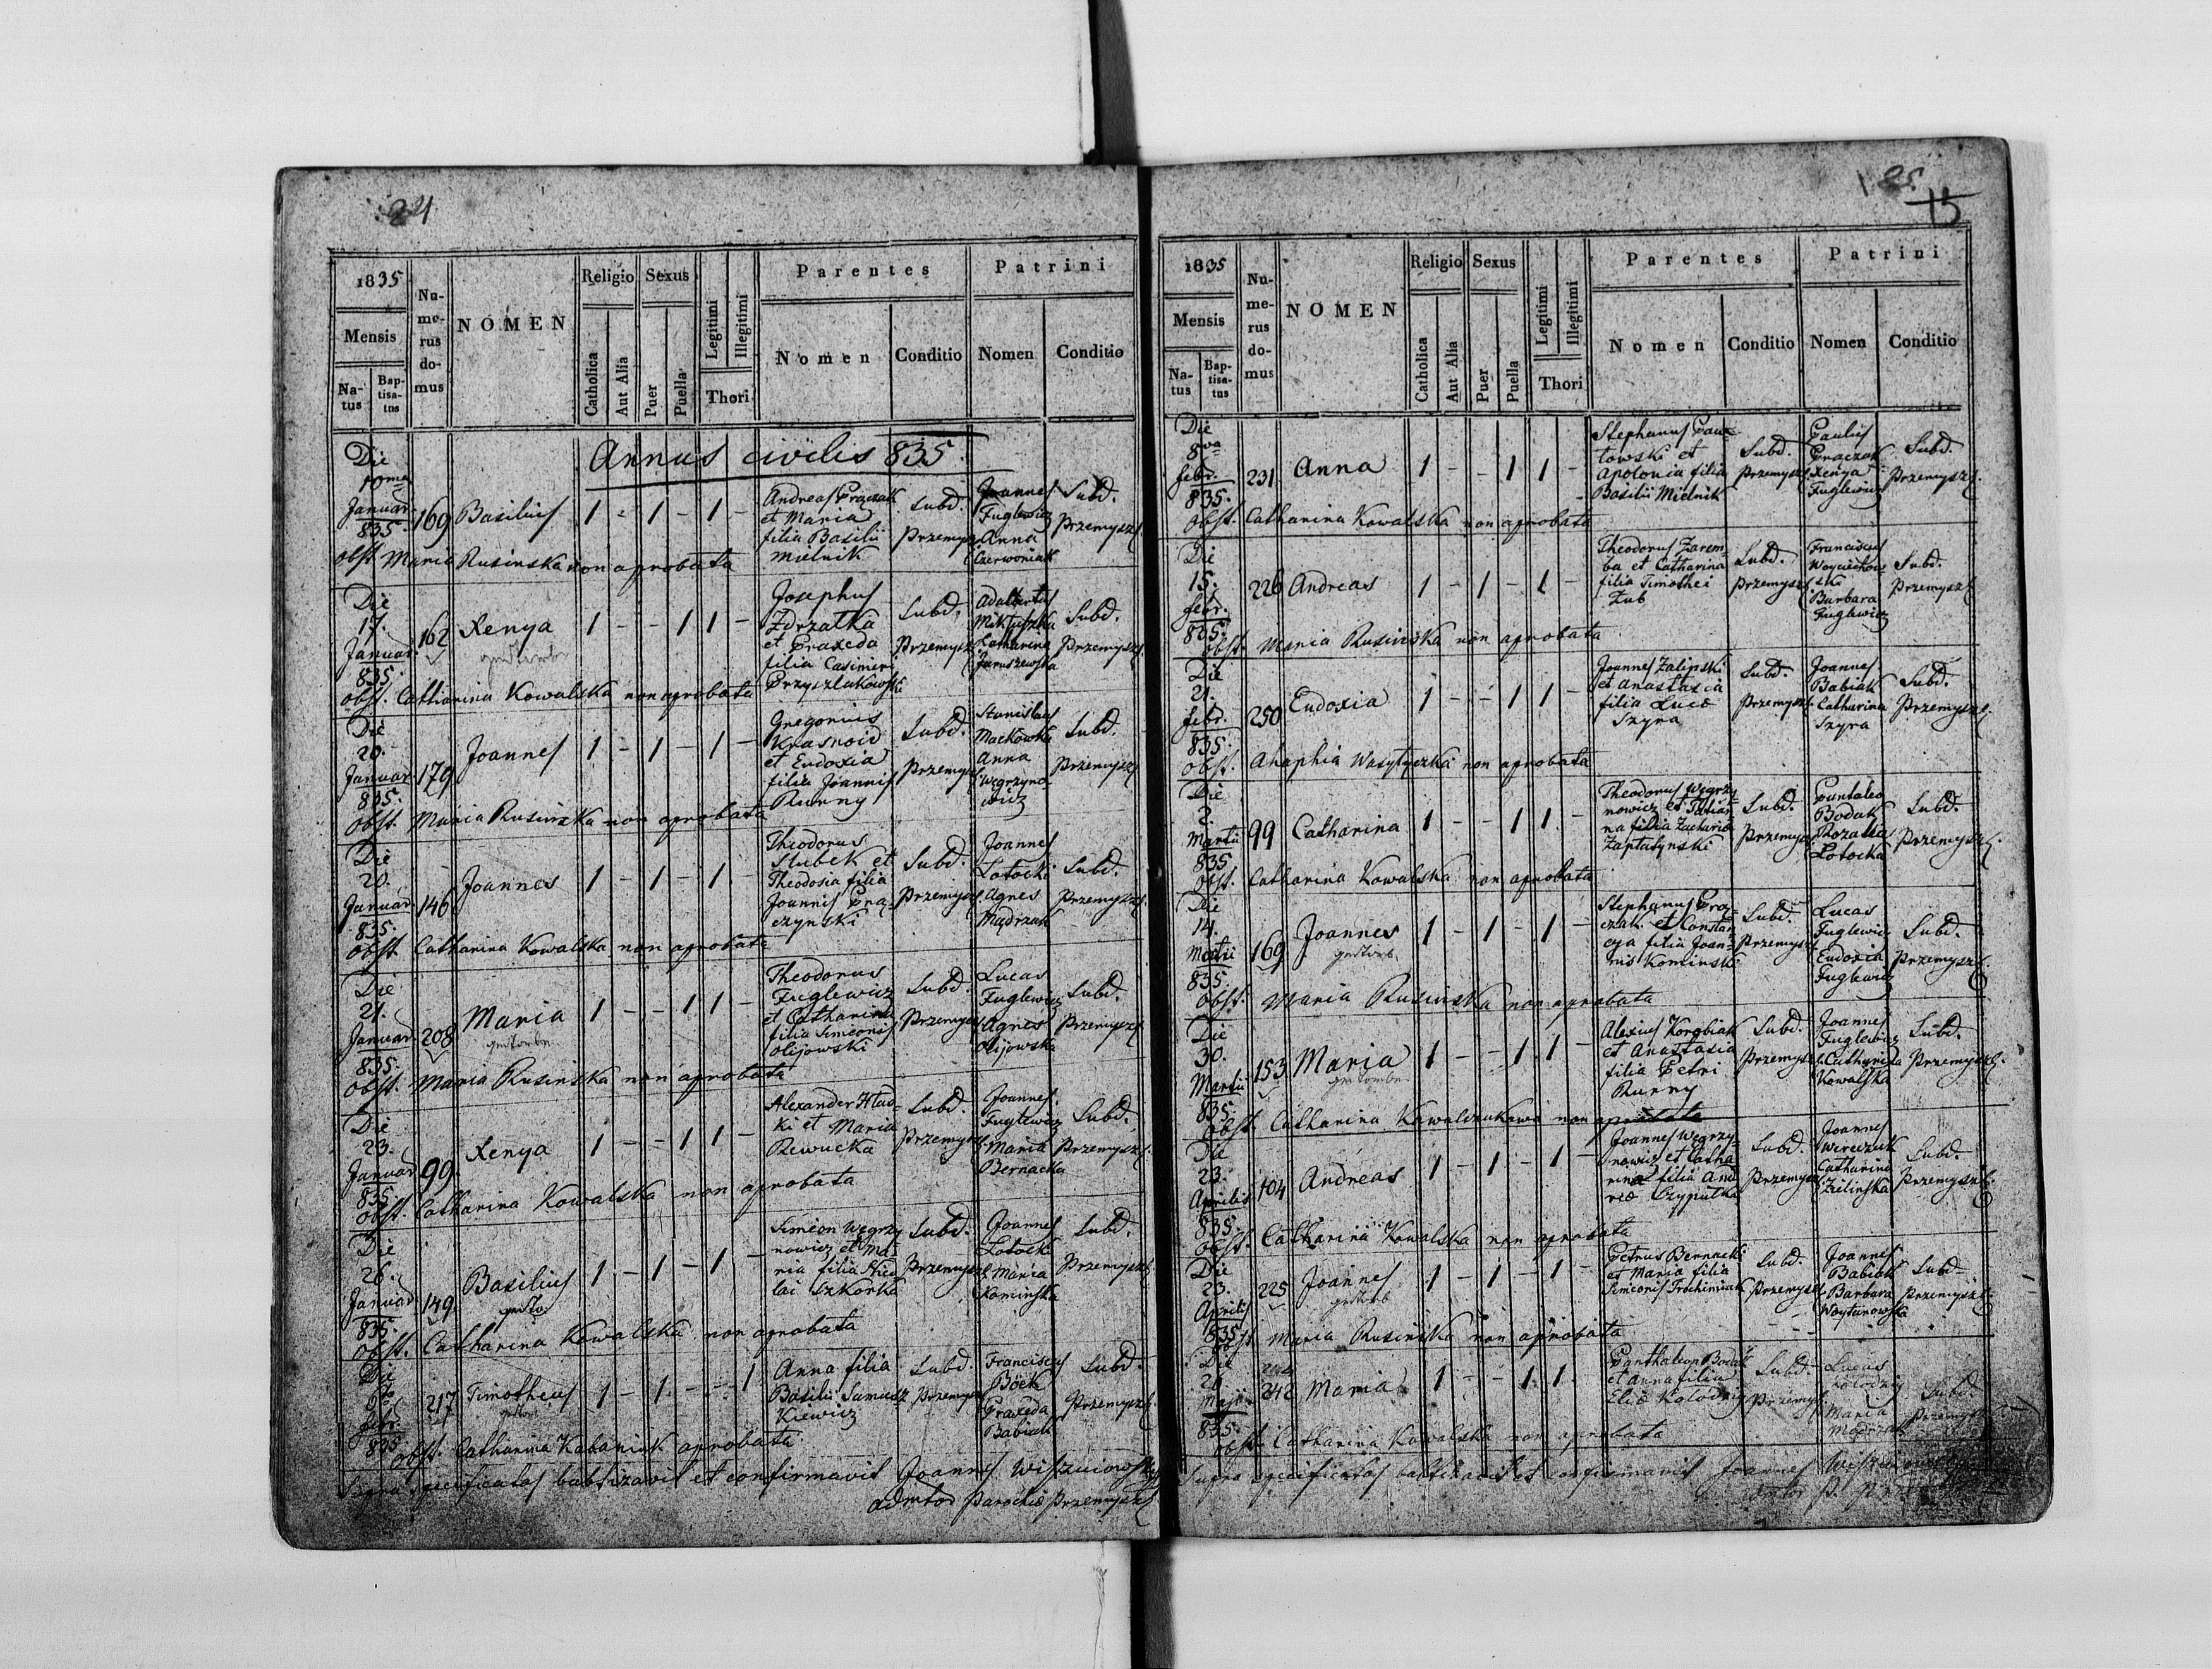 24
1835
Mensis
Na-
tus
Bap-
tisa-
tus
Nu-
me-
rus
do-
mus
NOMEN
Religio
Catholica
Aut Alia
Sexus
Puer
Puella
Legitimi
Illegitimi
Thori
Parentes
Nomen
Conditio
Patrini
Nomen
Conditio
Annus civilis 835.
Die
10ma
Januar
835.
169
Basilius
1 - 1 - 1 -
Andreas Praczak
et Maria
filia Basilii
Mielnik
Subd.
Przemysl.
Joannes
Fuglewicz
Anna
Czerwoniak
Subd.
Przemysl.
obst. Maria Rusinska non aprobata
Die
17.
Januar
835.
162
Xenya
1 - - 1 1 -
Josephus
Zdrzatka
et Praxeda
filia Casimiri
Przyszlakowski
Subd.
Przemysl.
Adalbertus
Catharina
Januszewska
Subd.
Przemysl.
obst. Catharina Kowalska non aprobata
Die
20.
Januar
835.
179
Joannes
1 - 1 - 1 -
Gregorius
Krasnoid
et Eudoxia
filia Joannis
Runny
Subd.
Przemysl.
Stanislaus
Mackowski
Anna
Węgrzyno-
wicz
Subd.
Przemysl.
obst. Maria Rusinska non aprobata
Die
20.
Januar
835.
146
Joannes
1 - 1 - 1 -
Theodorus
Slubek et
Theodosia filia
Joannis Pra-
czynski
Subd.
Przemysl.
Joannes
Lotocki
Agnes
Mądrzak
Subd.
Przemysl.
obst. Catharina Kowalska non aprobata
Die
21.
Januar
835.
208
Maria
1 - - 1 1 -
Theodorus
Fuglewicz
et Catharina
filia Simeonis
Olijowski
Subd.
Przemysl.
Lucas
Fuglewicz
Agnes
Olijowska
Subd.
Przemysl.
obst. Maria Rusinska non aprobata
Die
23.
Januar
835.
99.
Xenya
1 - - 1 1 -
Alexander Hlad-
ki et Maria
Rewucka
Subd.
Przemysl.
Joannes
Fuglewicz
Maria
Bernacka
Subd.
Przemysl.
obst. Catharina Kowalska non aprobata
Die
26.
Januar
835.
149.
Basilius
1 - 1 - 1 -
Simeon Węgrzy
nowicz et Ma-
ria filia Nico
lai Szkorka
Subd.
Przemysl.
Joannes
Lotocki
Maria
Kominska
Subd.
Przemysl.
obst. Catharina Kowalska non aprobata
Die
febr.
835
217
Timotheus
1 - 1 - - 1
Anna filia
Basilii Samusz
kiewicz
Subd.
Przemysl.
Franciscus
Böck
Praxeda
Babiak
Subd.
Przemysl.
obst. Catharina Kabaniuk aprobata
Supra specificatos babtizavit et confirmavit Joannes Wiszniowski
admtor Parochiæ Przemysl.
25.
15
1835
Mensis
Na-
tus
Bap-
tisa-
tus
Nu-
me-
rus
do-
mus
NOMEN
Religio
Catholica
Aut Alia
Sexus
Puer
Puella
Legitimi
Illegitimi
Thori
Parentes
Nomen
Conditio
Patrini
Nomen
Conditio
Die
8va
febr.
835.
231
Anna
1 - - 1 1 -
Stephanus Paw-
lowski et
Apolonia filia
Basilii Mielnik
Subd.
Przemysl.
Paulus
Praczak
Xenya
Fuglewicz
Subd.
Przemysl.
obst. Catharina Kowalska non aprobata
Die
15.
febr.
835.
226
Andreas
1 - 1 - 1 -
Theodorus Zarem-
ba et Catharina
filia Timothei
Zub
Subd.
Przemysl.
Franciscus
Woyciechow
ski
Barbara
Fuglewicz
Subd.
Przemysl.
obst. Maria Rusinska non aprobata
Die
21.
febr.
835.
250
Eudoxia
1 - - 1 1 -
Joannes Zalipski
et Anastasia
filia Lucæ
Szyra
Subd.
Przemysl.
Joannes
Babiak
Catharina
Szyra
Subd.
Przemysl.
obst. Ahaphia Wasylyczka non aprobata
Die
2.
Martii
835
99
Catharina
1 - - 1 1 -
Theodorus Węgrzy-
nowicz et Tatian-
na filia Zachariæ
Zaplatynski
Subd.
Przemysl.
Puntaleo
Bodak
Rozalia
Lotocka
Subd.
Przemysl.
obst. Catharina Kowalska non aprobata
Die
14.
Martii
835.
169
Joannes
1 - 1 - 1 -
Stephanus Pra-
czak et Constan-
cya filia Joan-
nis Kominski
Subd.
Przemysl.
Lucas
Fuglewicz
Eudoxia
Fuglewicz
Subd.
Przemysl.
obst. Maria Rusinska non aprobata
Die
30.
Martii
835.
153
Maria
1 - - 1 1 -
Alexius Korobiak
et Anastasia
filia Petri
Runny
Subd.
Przemysl.
Joannes
Fuglewicz
Catharina
Kowalska
Subd.
Przemysl.
obst. Catharina Kowalczukowa non aprobata
Die
23.
Aprilis
835.
104
Andreas
1 - 1 - 1 -
Joannes Węgrzy-
nowicz et Catha
rina filia And
reæ Szypulka
Subd.
Przemysl.
Joannes
Wereszczuk
Catharina
Zielinska
Subd.
Przemysl.
obst. Catharina Kowalska non aprobata
Die
23.
Aprilis
835
225
Joannes
1 - 1 - 1 -
Petrus Bernacki
et Maria filia
Simeonis Trochimiak
Subd.
Przemysl.
Joannes
Babiak
Barbara
Woytanowska
Subd.
Przemysl.
obst. Maria Rusinska non aprobata
Die
21
Maji
835.
242
Maria
1 - - 1 1
Panthaleon Bodak
et Anna filia
Eliæ Kolodziy
Subd.
Przemysl.
Lucas
Kolodziy
Maria
Mądrzak
Subd.
Przemysl.
obst. Catharina Kowalska non aprobata
Supra specificatos babtizavit et confirmavit Joannes Wiszniowski
admtor P.